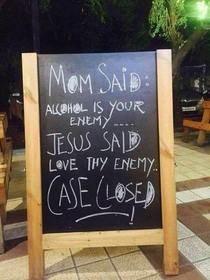 MOM SAID:
ALCOHOL IS YOUR
ENEMY....
JESUS SAID
LOVE THY ENEMY..
CASE CLOSED